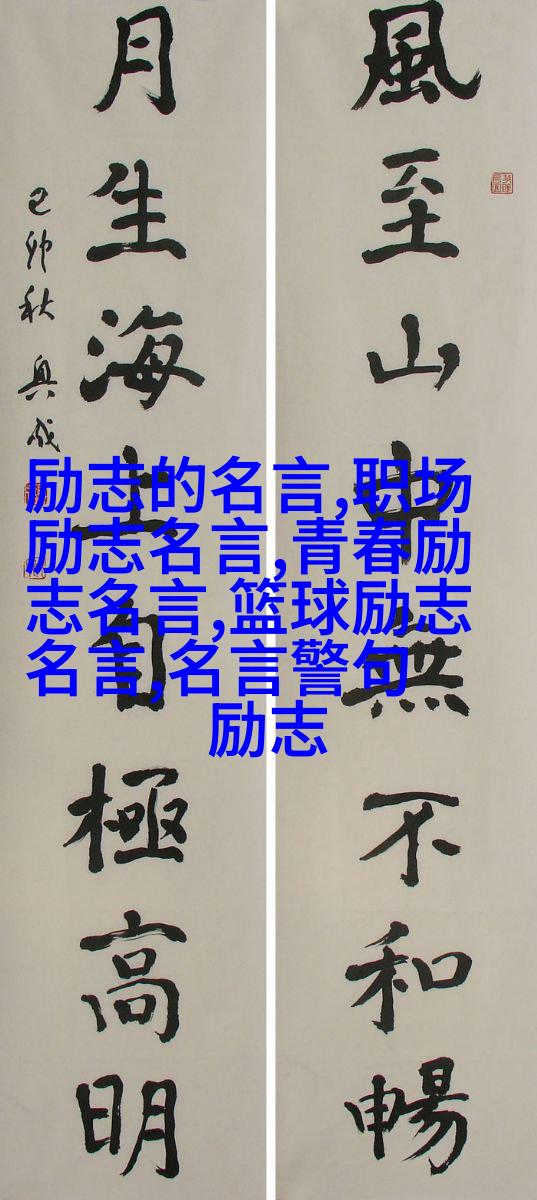 風至山中無不和暢
月生海上自極高明
己卯秋
励志的名言,职场
励志名言,青春励
志名言,篮球励志
名言,名言警句
励志